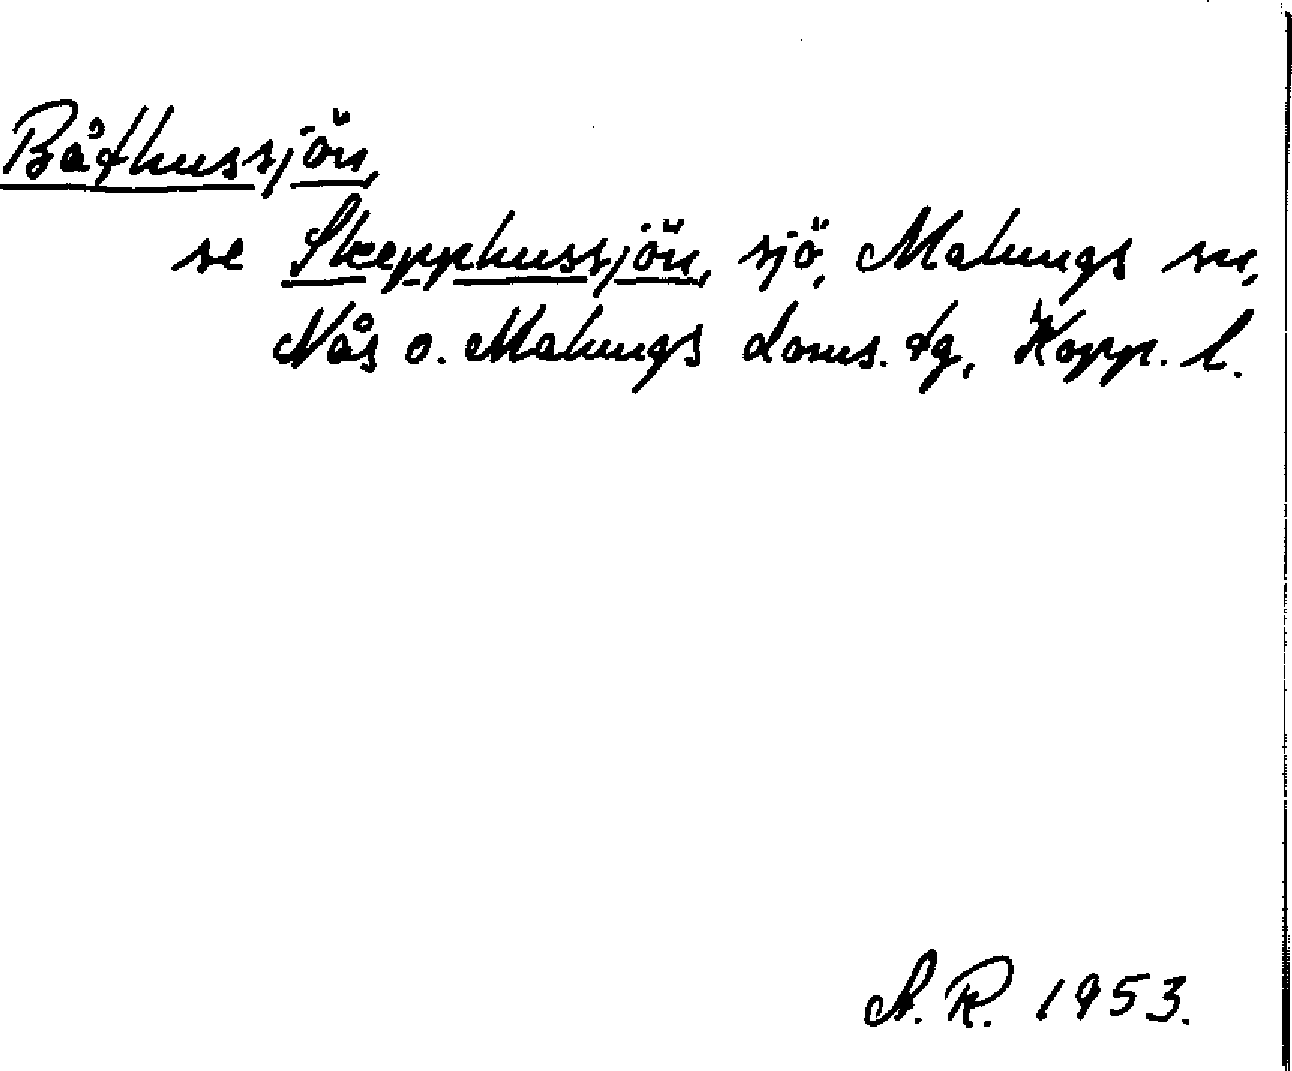 Båthussjön,
se Skepphussjön, sjö, Malungs sn,
Nås o. Malungs doms. tg, Kopp. l.
A. R. 1953.